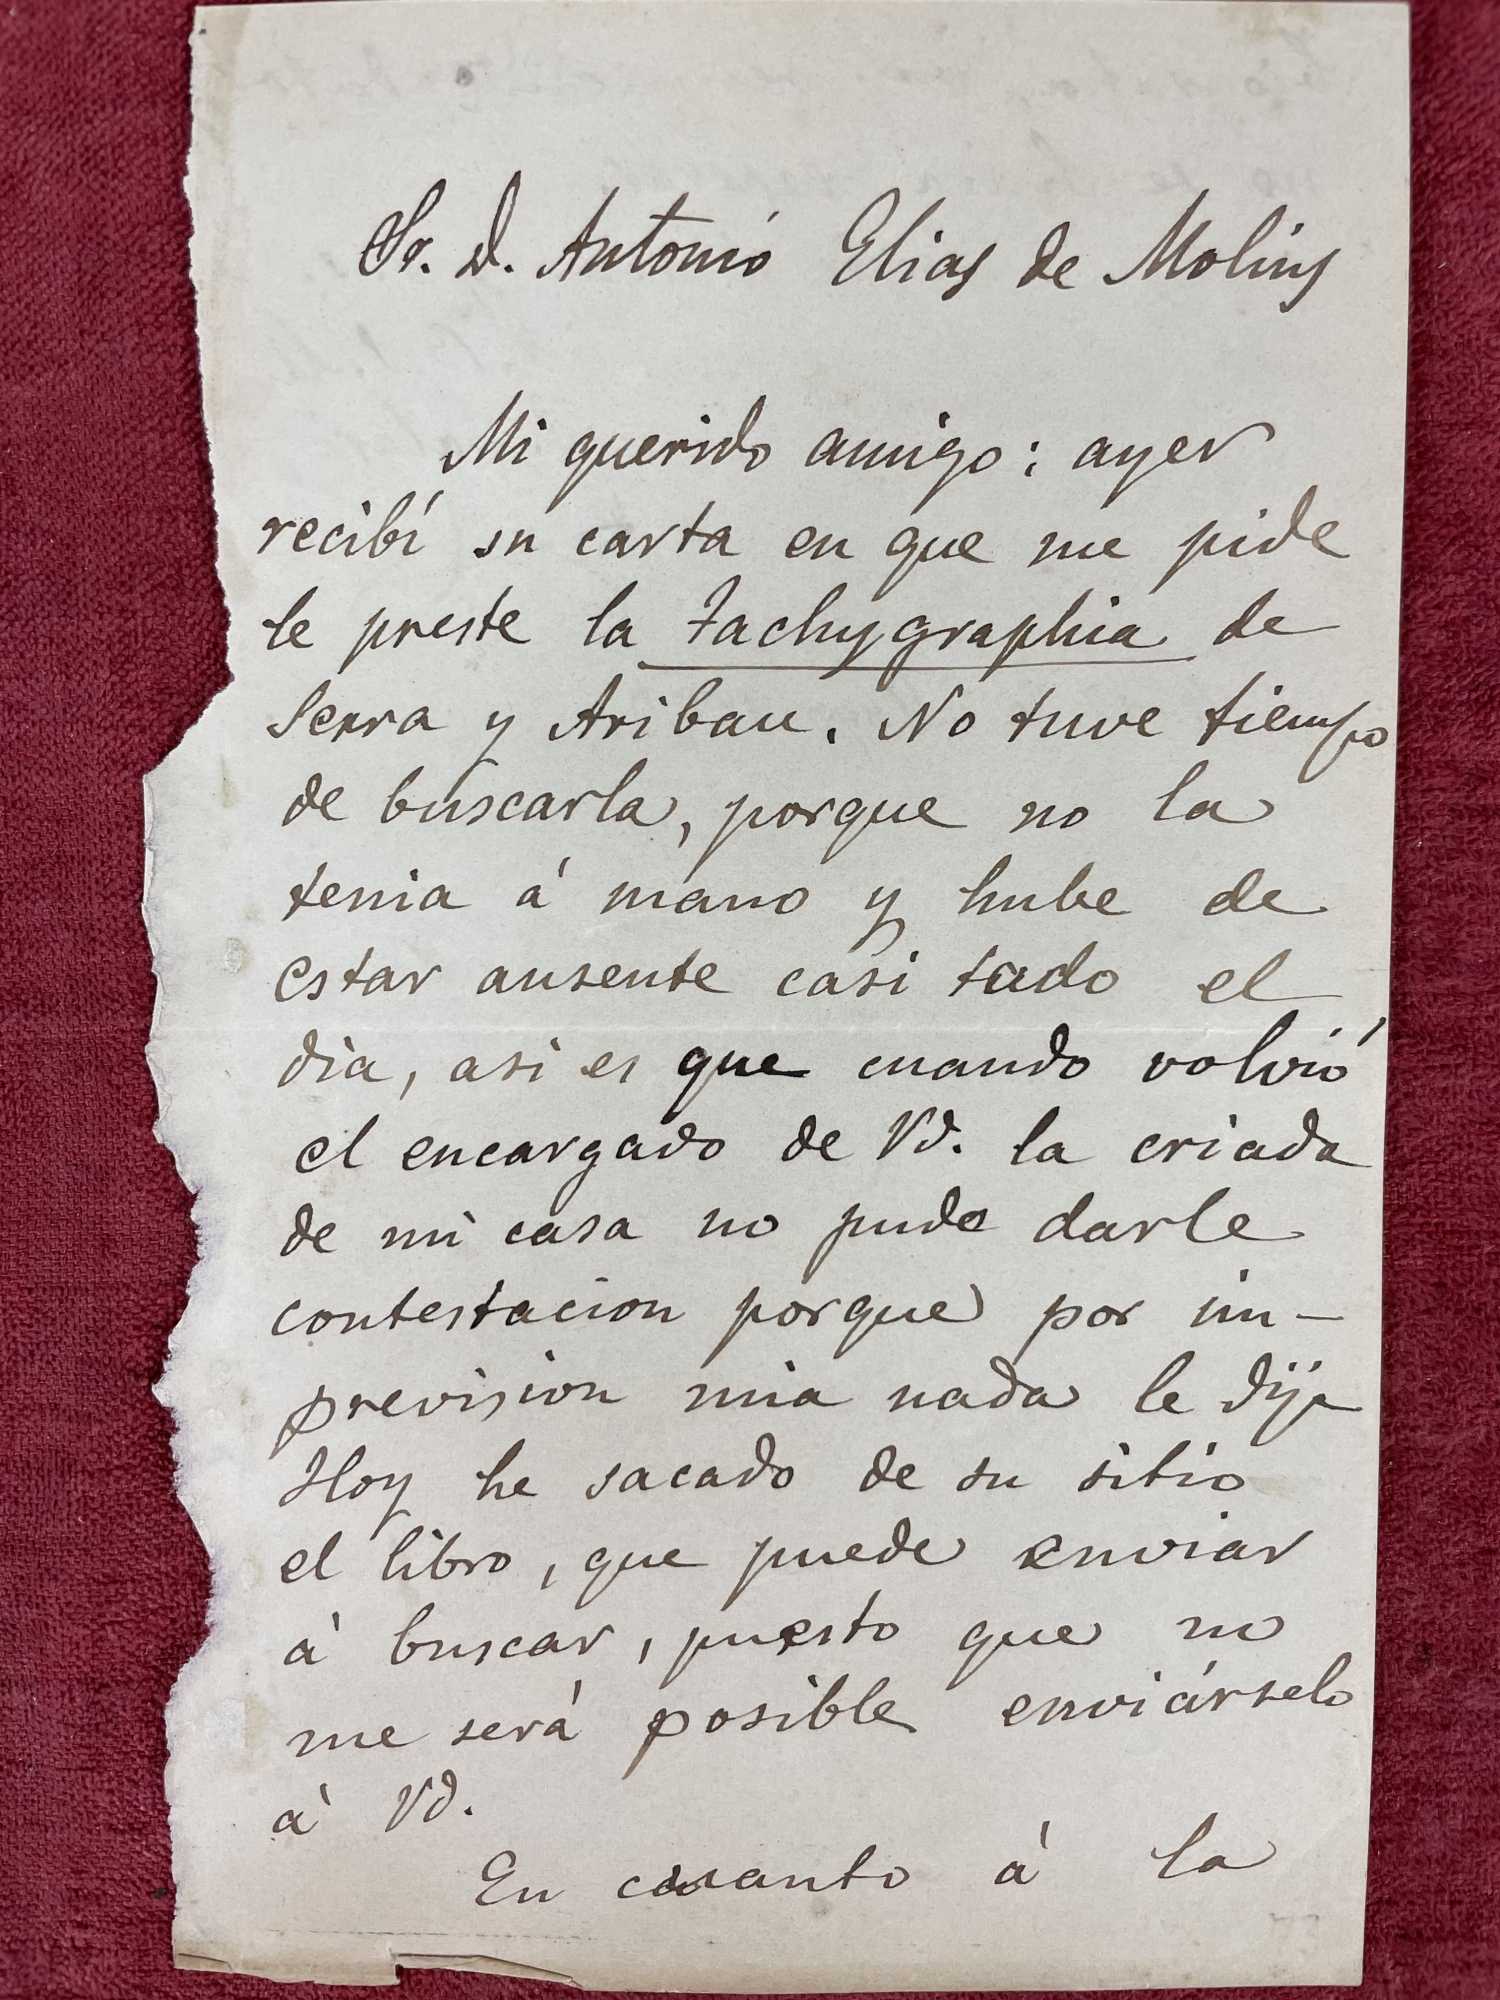 Sr. D. Antonió Elias de Molins
Mi querido amigo: ayer
recibí su carta en que me pide
le preste la Tachygraphia de
Serra y Aribau. No tuve tiempo
de buscarla, porque no la
tenia á mano y hube de
estar ausente casi todo el
dia, asi es que cuando volvió
el encargado de Vd. la criada
de mi casa no pudo darle
contestacion porque por im-
prevision mia nada le dije
Hoy he sacado de su sitio
el libro, que puede enviar
á buscar, puesto que no
me será posible enviárselo
á Vd.
En cuanto á la